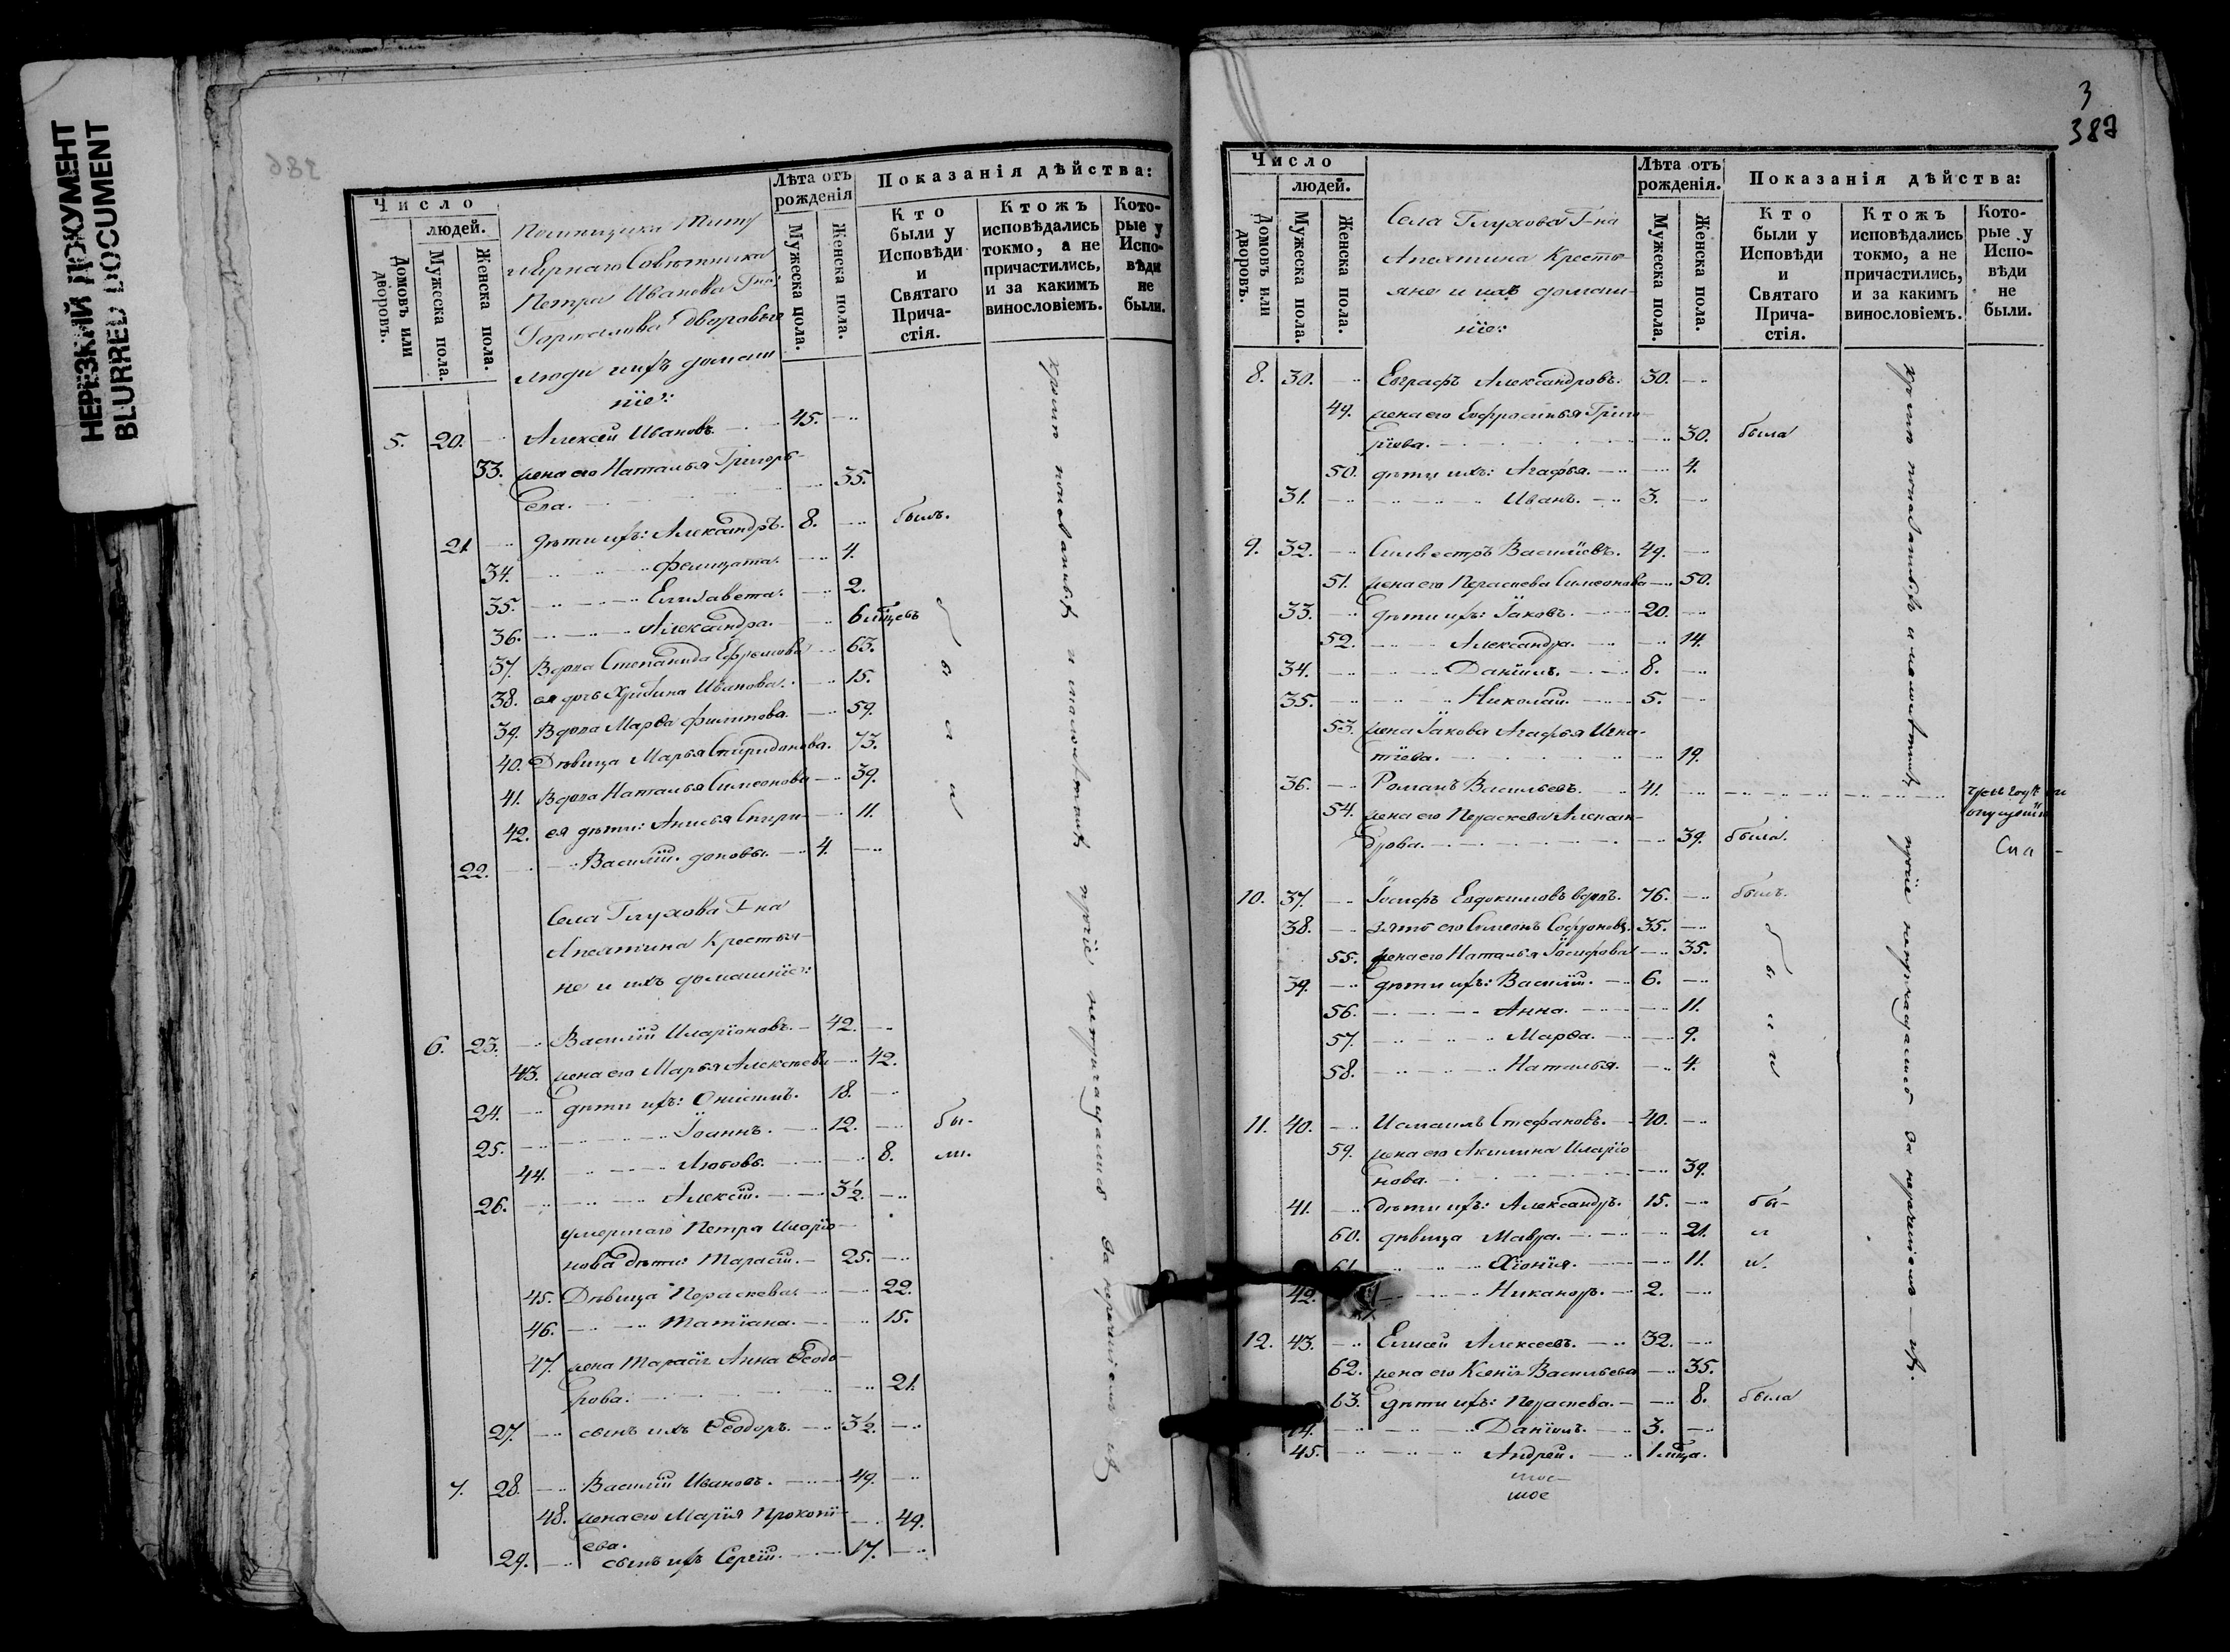 НЕРЕЗКИЙ ДОКУМЕНТ
BLURRED DOCUMENT
386
Число
людей.
Домовъ или дворовъ.
Мужеска пола.
Женска пола.
Помѣщика Титу
лярнаго Совѣтника
Петра Иванова Гна
дворовые
люди ихъ домаш
ніе:
Лѣта отъ рожденія
Мужеска пола.
Женска пола.
Показанія дѣйства:
Кто были у Исповѣди и Святаго Причастія.
Ктожъ исповѣдались токмо, а не причастились, и за какимъ винословіемъ.
Которые у Исповѣди не были.
5. 20. Алексѣй Ивановъ. 45.
33. жена его Наталья Григорь-
ева. 35.
21. дѣти ихъ: Александръ. 8. былъ.
34. Фелицата. 4.
35. Елисавета. 2.
36. Александра. 6 мѣсцевъ
37. Вдова Степанида Ефремова 63.
38. ея дочь Христина Иванова. 15.
39. Вдова Марѳа Филипова. 59.
40. Дѣвица Марья Спиридонова. 73.
41. Вдова Наталья Симеонова 39.
42. ея дѣти: Анисья Спири- 11.
22. Василій доновы. 4.
Села Глухова Г-на
Апсяитина Крестья-
не и ихъ домашніе:
6. 23. Василій Иларіоновъ. 42.
43. жена его Марья Алексѣева 42.
24. дѣти ихъ: Онисимъ. 18.
25. Іоаннъ. 12. бы-
44. Любовь. 8. ли.
26. Алексій. 3½.
умершаго Петра Иларіо-
нова дѣти: Тарасій. 25.
45. Дѣвица Параскева 22.
46. Татіана. 15.
47. жена Тарасія Анна Ѳеодо-
рова. 21.
27. сынъ ихъ Ѳеодоръ. 3½.
7. 28. Василій Ивановъ. 49.
48. жена его Марія Прокопі-
ева. 49.
29. сынъ ихъ Сергій. 17.
3
387
Число
людей.
Домовъ или дворовъ.
Мужеска пола.
Женска пола.
Села Глухова Г-на
Крестья-
яне и ихъ домаш-
ніе:
Лѣта отъ рожденія.
Мужеска пола.
Женска пола.
Показанія дѣйства:
Кто были у Исповѣди и Святаго Причастія.
Ктожъ исповѣдались токмо, а не причастились, и за какимъ винословіемъ.
Которые у Исповѣди не были.
8. 30. Евграфъ Александровъ. 30.
49. жена его Евфросинья Григо-
рьева. 30. была
50. дѣти ихъ: Агафья. 4.
31. Иванъ. 3.
9. 32. Сильвестръ Василіевъ. 49.
51. жена его Параскева Симеонова 50.
33. дѣти ихъ: Іаковъ. 20.
52. Александра. 14.
34. Даніилъ. 8.
35. Николай. 5.
53. жена Іакова Агафья Игна-
тіева. 19.
36. Романъ Васильевъ. 41.
54. жена его Параскева Алексан-
дрова. 39. была.
10. 37. Іосифъ Евдокимовъ вдовъ. 76. былъ.
38. зять его Симеонъ Софроновъ. 35.
55. жена его Наталья Іосифова 35.
39. дѣти ихъ: Василій. 6.
56. Анна. 11.
57. Марѳа. 9.
58. Наталья. 4.
11. 40. Исмаилъ Стефановъ. 40.
59. жена его Акилина Иларіо
нова. 39.
41. дѣти ихъ: Александръ. 15. бы-
60. дѣвица Мавра. 21. л
61. Хіонія. 11. и.
42. Никаноръ. 2.
12. 43. Елисей Алексеевъ. 32.
62. жена его Ксенія Васильева 35.
63. дѣти ихъ: Параскева. 8. была
44. Даніилъ. 3.
45. Андрей. 1 мѣсца.